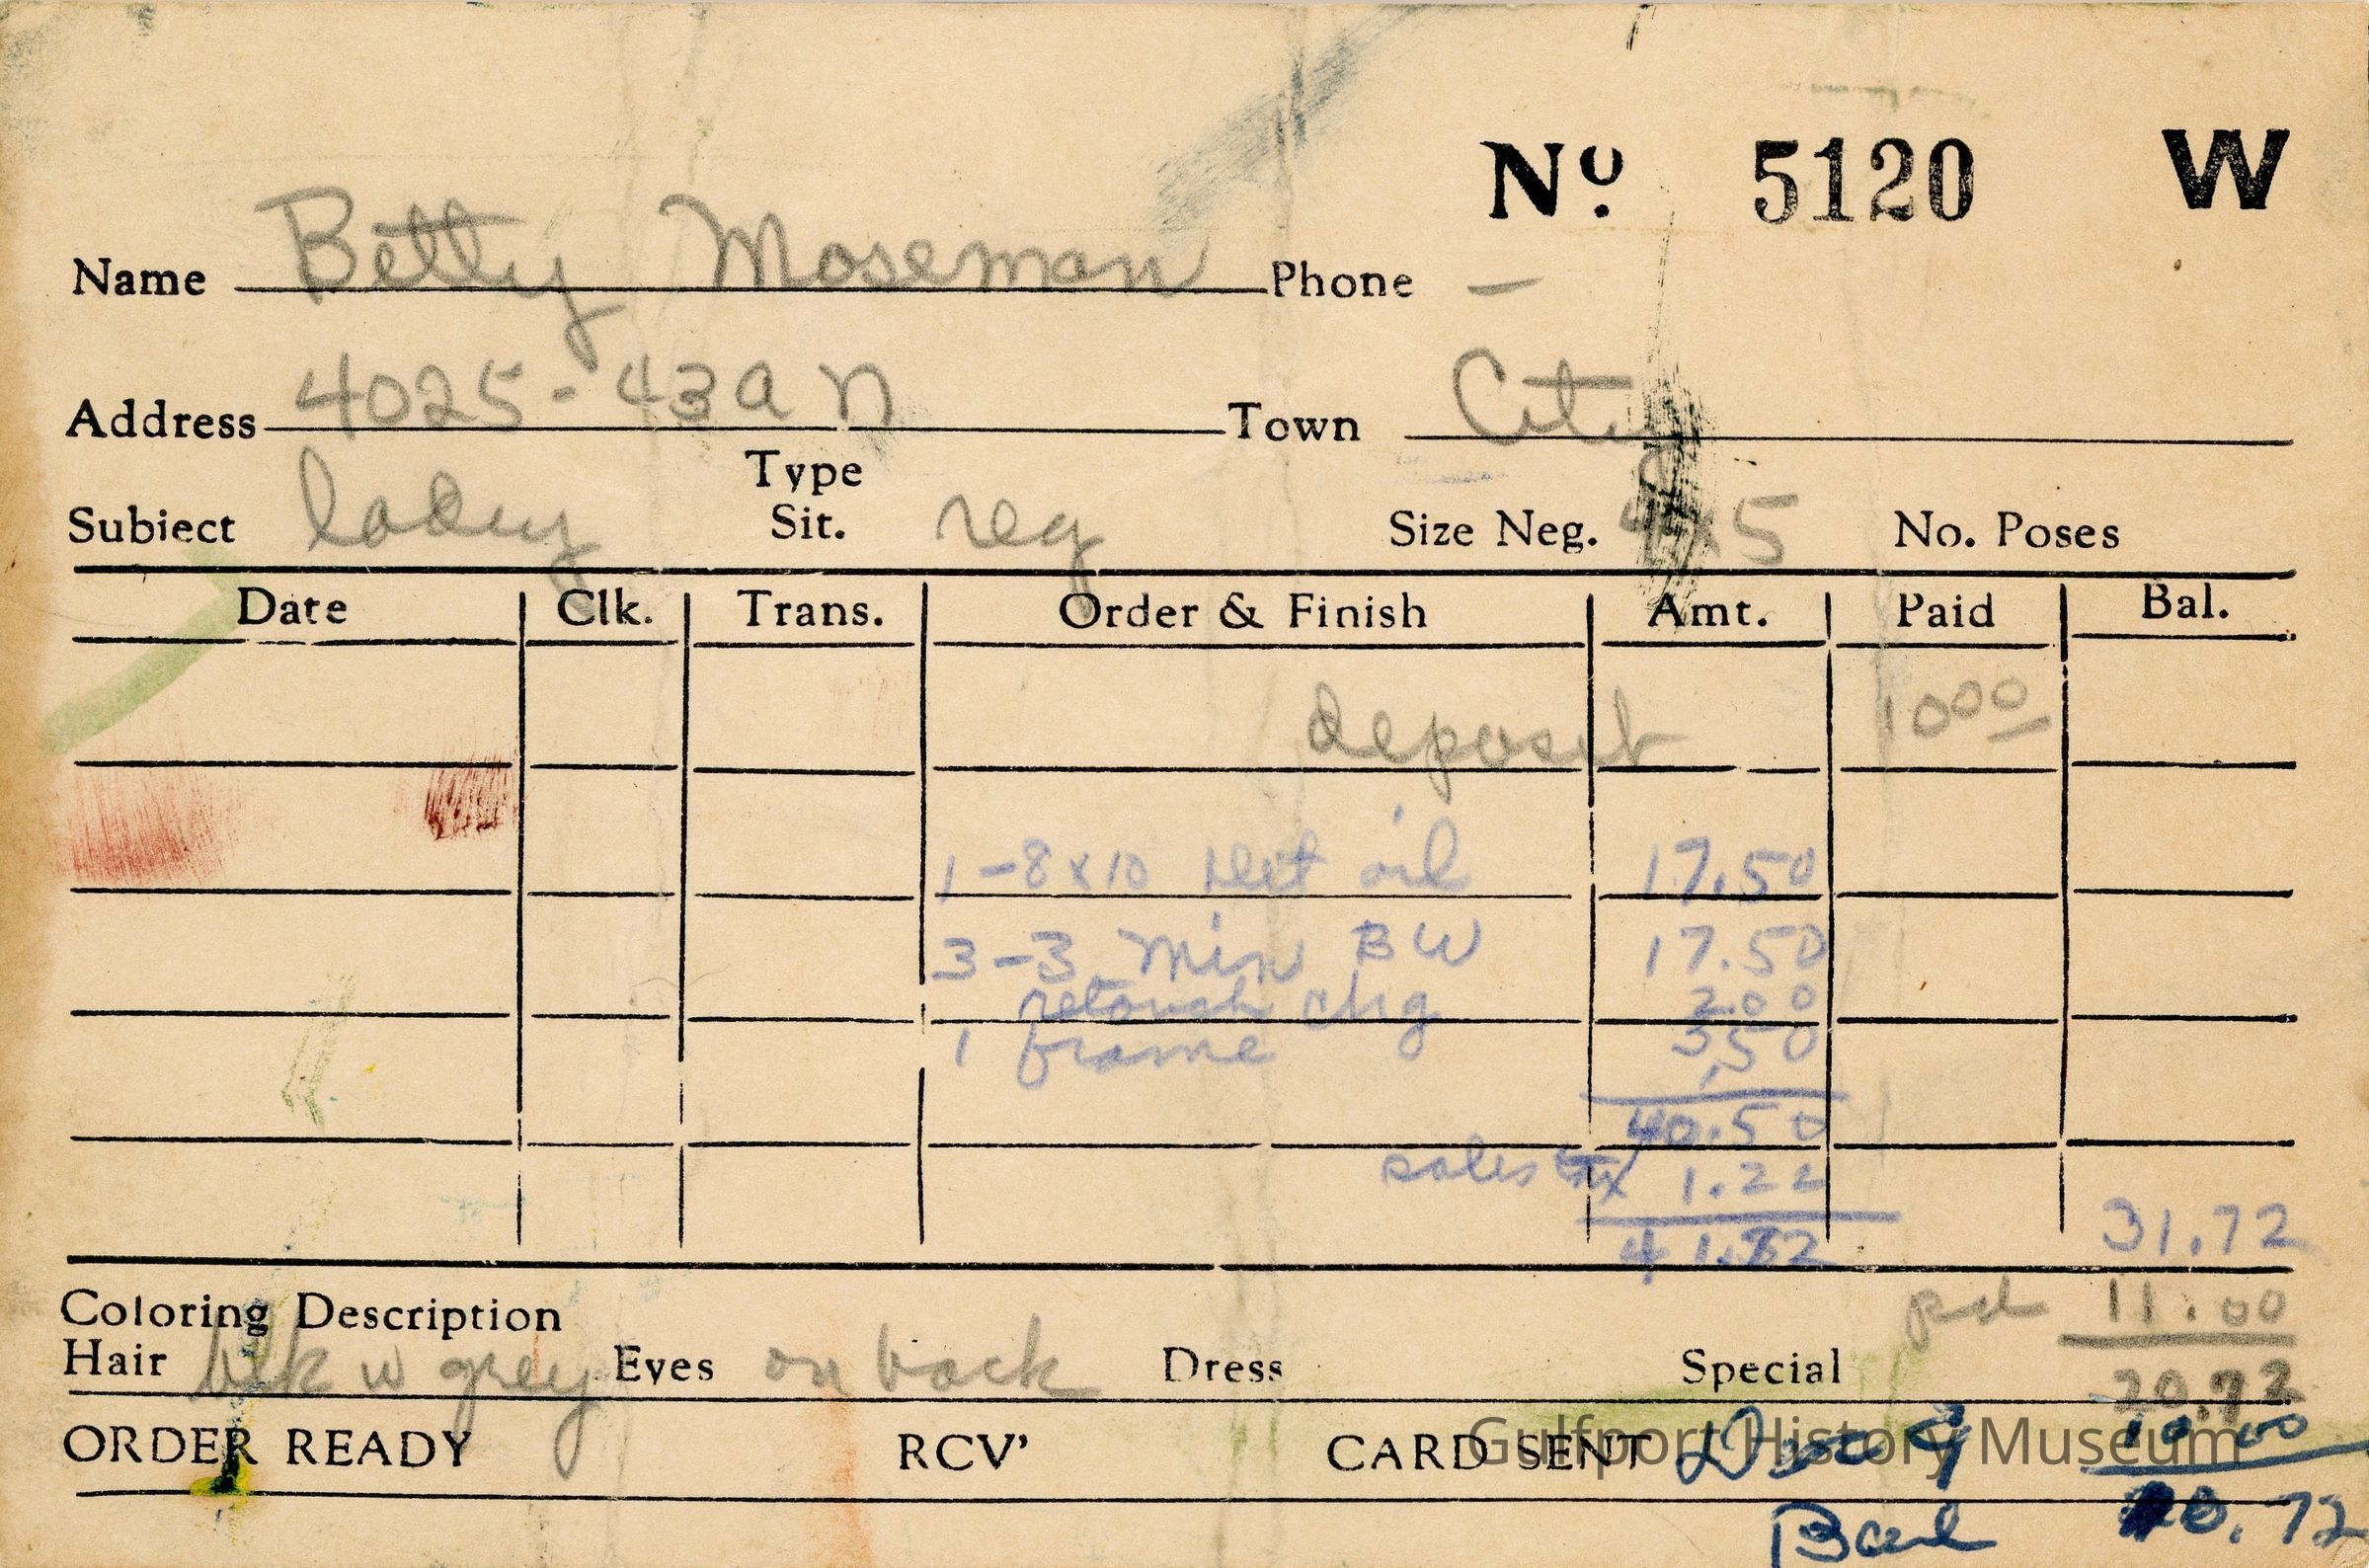 Nº 5120 W
Name Betty Moseman Phone —
Address 4025-43 a n Town City
Type
Subject lady Sit. reg Size Neg. 4x5 No. Poses
Date Clk. Trans. Order & Finish Amt. Paid Bal.
deposit 10 00
1-8x10 oil 17.50
3-3 Min BW 17.50
retouch chg 2.00
1 frame 3.50
40.50
sales tax 1.22
41.72 31.72
pd 11.00
Coloring Description
Hair blk w grey Eyes on back Dress Special 20.72
ORDER READY RCV' CARD SENT Dec 9 10.00
Bal 10.72
Gulfport History Museum